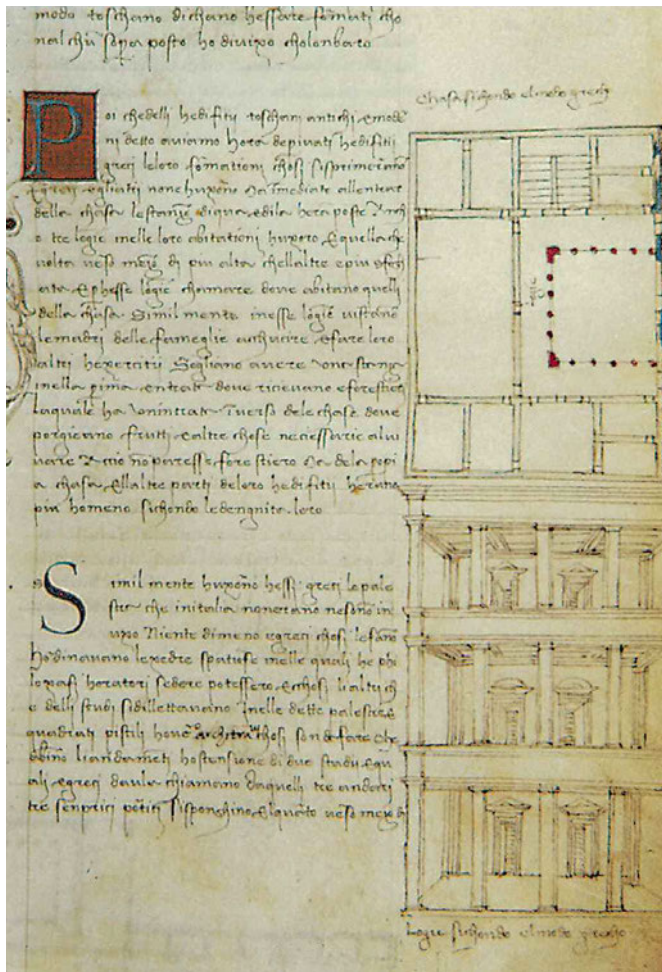 modo toschano dichano hessare formati cho
nal chu sopra posto ho divixo cholonbaro
Chasa sichondo el modo grecho
Poi chedelli hedifitii toschani antichi e mode
ni detto aviamo hora de pivati hedifitii
greci le loro formationi chosi sisprimerano
E greci egliatii none huxono ma imediate allentrar
della chasa le stanze di qua e di la hera poste
o tre logie inelle loro abitationi huxero E quella che
volta verso mezi di piu alta chellaltre e piu
ata E phesse logie chiamare dove abitano quelli
della chasa Simil mente inesse logie vistano
le madri delle fameglie a chucire e fare loro
altri hexercitii Sogliano avere una stanza
inella pima entrata dove ricievano e forestieri
laquale ha unintrata inverso dele chase dove
porgievano frutti e altre chose neciessarie al vi
vare Acio no paresse forestiero ma dela popi
a chasa Ellaltre parti de loro hedifitii herano
piu homeno sichondo le dengnita loro
logie
Simil mente huxono hessi greci le pale
stre che in italia nonerano ne sono in
uxo Niente di meno e greci chosi le fano
Hordinavano lexedre spatiose inelle quali he phi
loxafi horatori sedere potessero e chosi li altri ch
e delli studi si dilettavano Inelle dette palestre e
quadrati pistili hover chosi son da fare che
abino li andameti hostensione di due stadii e qu
ali e greci daula chiamano daquelli tre andari
tre senprici potici si disponghino el quarto verso mezo di
Logie sichondo el modo grecho